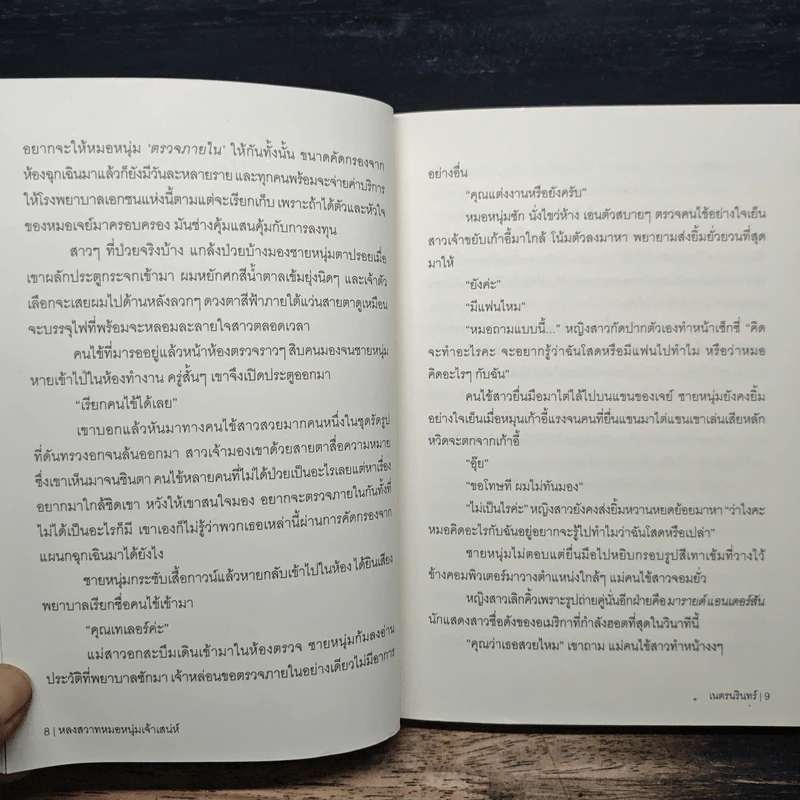 อยากจะให้หมอหนุ่ม ‘ตรวจภายใน’ ให้กันทั้งนั้น ขนาดคัดกรองจาก
ห้องฉุกเฉินมาแล้วก็ยังมีวันละหลายราย และทุกคนพร้อมจะจ่ายค่าบริการ
ให้โรงพยาบาลเอกชนแห่งนี้ตามแต่จะเรียกเก็บ เพราะถ้าได้ตัวและหัวใจ
ของหมอเจย์มาครอบครอง มันช่างคุ้มแสนคุ้มกับการลงทุน
สาวๆ ที่ป่วยจริงบ้าง แกล้งป่วยบ้างมองชายหนุ่มตาปรอยเมื่อ
เขาผลักประตูกระจกเข้ามา ผมหยักศกสีน้ำตาลเข้มยุ่งนิดๆ และเจ้าตัว
เลือกจะเสยผมไปด้านหลังลวกๆ ดวงตาสีฟ้าภายใต้แว่นสายตาดูเหมือน
จะบรรจุไฟที่พร้อมจะหลอมละลายใจสาวตลอดเวลา
คนไข้ที่มารออยู่แล้วหน้าห้องตรวจราวๆ สิบคนมองจนชายหนุ่ม
หายเข้าไปในห้องทำงาน ครู่สั้นๆ เขาจึงเปิดประตูออกมา
“เรียกคนไข้ได้เลย”
เขาบอกแล้วหันมาทางคนไข้สาวสวยมากคนหนึ่งในชุดรัดรูป
ที่ดันทรวงอกจนล้นออกมา สาวเจ้ามองเขาด้วยสายตาสื่อความหมาย
ซึ่งเขาเห็นมาจนชินตา คนไข้หลายคนที่ไม่ได้ป่วยเป็นอะไรเลยแต่หาเรื่อง
อยากมาใกล้ชิดเขา หวังให้เขาสนใจมอง อยากจะตรวจภายในกันทั้งที่
ไม่ได้เป็นอะไรก็มี เขาเองก็ไม่รู้ว่าพวกเธอเหล่านี้ผ่านการคัดกรองจาก
แผนกฉุกเฉินมาได้ยังไง
ชายหนุ่มกระชับเสื้อกาวน์แล้วหายกลับเข้าไปในห้อง ได้ยินเสียง
พยาบาลเรียกชื่อคนไข้เข้ามา
“คุณเทเลอร์ค่ะ”
แม่สาวอกสะบึมเดินเข้ามาในห้องตรวจ ชายหนุ่มก้มลงอ่าน
ประวัติที่พยาบาลซักมา เจ้าหล่อนขอตรวจภายในอย่างเดียวไม่มีอาการ
8 | หลงสวาทหมอหนุ่มเจ้าเสน่ห์
อย่างอื่น
“คุณแต่งงานหรือยังครับ”
หมอหนุ่มซัก นั่งไขว่ห้าง เอนตัวสบายๆ ตรวจคนไข้อย่างใจเย็น
สาวเจ้าขยับเก้าอี้มาใกล้ โน้มตัวลงมาหา พยายามส่งยิ้มยั่วยวนที่สุด
มาให้
“ยังค่ะ”
“มีแฟนไหม”
“หมอถามแบบนี้...” หญิงสาวกัดปากตัวเองทำหน้าเซ็กซี่ “คิด
จะทำอะไรคะ จะอยากรู้ว่าฉันโสดหรือมีแฟนไปทำไม หรือว่าหมอ
คิดอะไรๆ กับฉัน”
คนไข้สาวยื่นมือมาไต่ไล้ไปบนแขนของเจย์ ชายหนุ่มยังคงยิ้ม
อย่างใจเย็นเมื่อหมุนเก้าอี้แรงจนคนที่ยื่นแขนมาไต่แขนเขาเล่นเสียหลัก
หวิดจะตกจากเก้าอี้
“อุ๊ย”
“ขอโทษที ผมไม่ทันมอง”
“ไม่เป็นไรค่ะ” หญิงสาวยังคงส่งยิ้มหวานหยดย้อยมาหา “ว่าไงคะ
หมอคิดอะไรกับฉันอยู่อยากจะรู้ไปทำไมว่าฉันโสดหรือเปล่า”
ชายหนุ่มไม่ตอบแต่ยื่นมือไปหยิบกรอบรูปสีเทาเข้มที่วางไว้
ข้างคอมพิวเตอร์มาวางตำแหน่งใกล้ๆ แม่คนไข้สาวจอมยั่ว
หญิงสาวเลิกคิ้วเพราะรูปถ่ายคู่นั่นอีกฝ่ายคือมารายด์แอนเดอร์สัน
นักแสดงสาวชื่อดังของอเมริกาที่กำลังฮอตที่สุดในวินาทีนี้
“คุณว่าเธอสวยไหม” เขาถาม แม่คนไข้สาวทำหน้างงๆ
เนตรนรินทร์ | 9